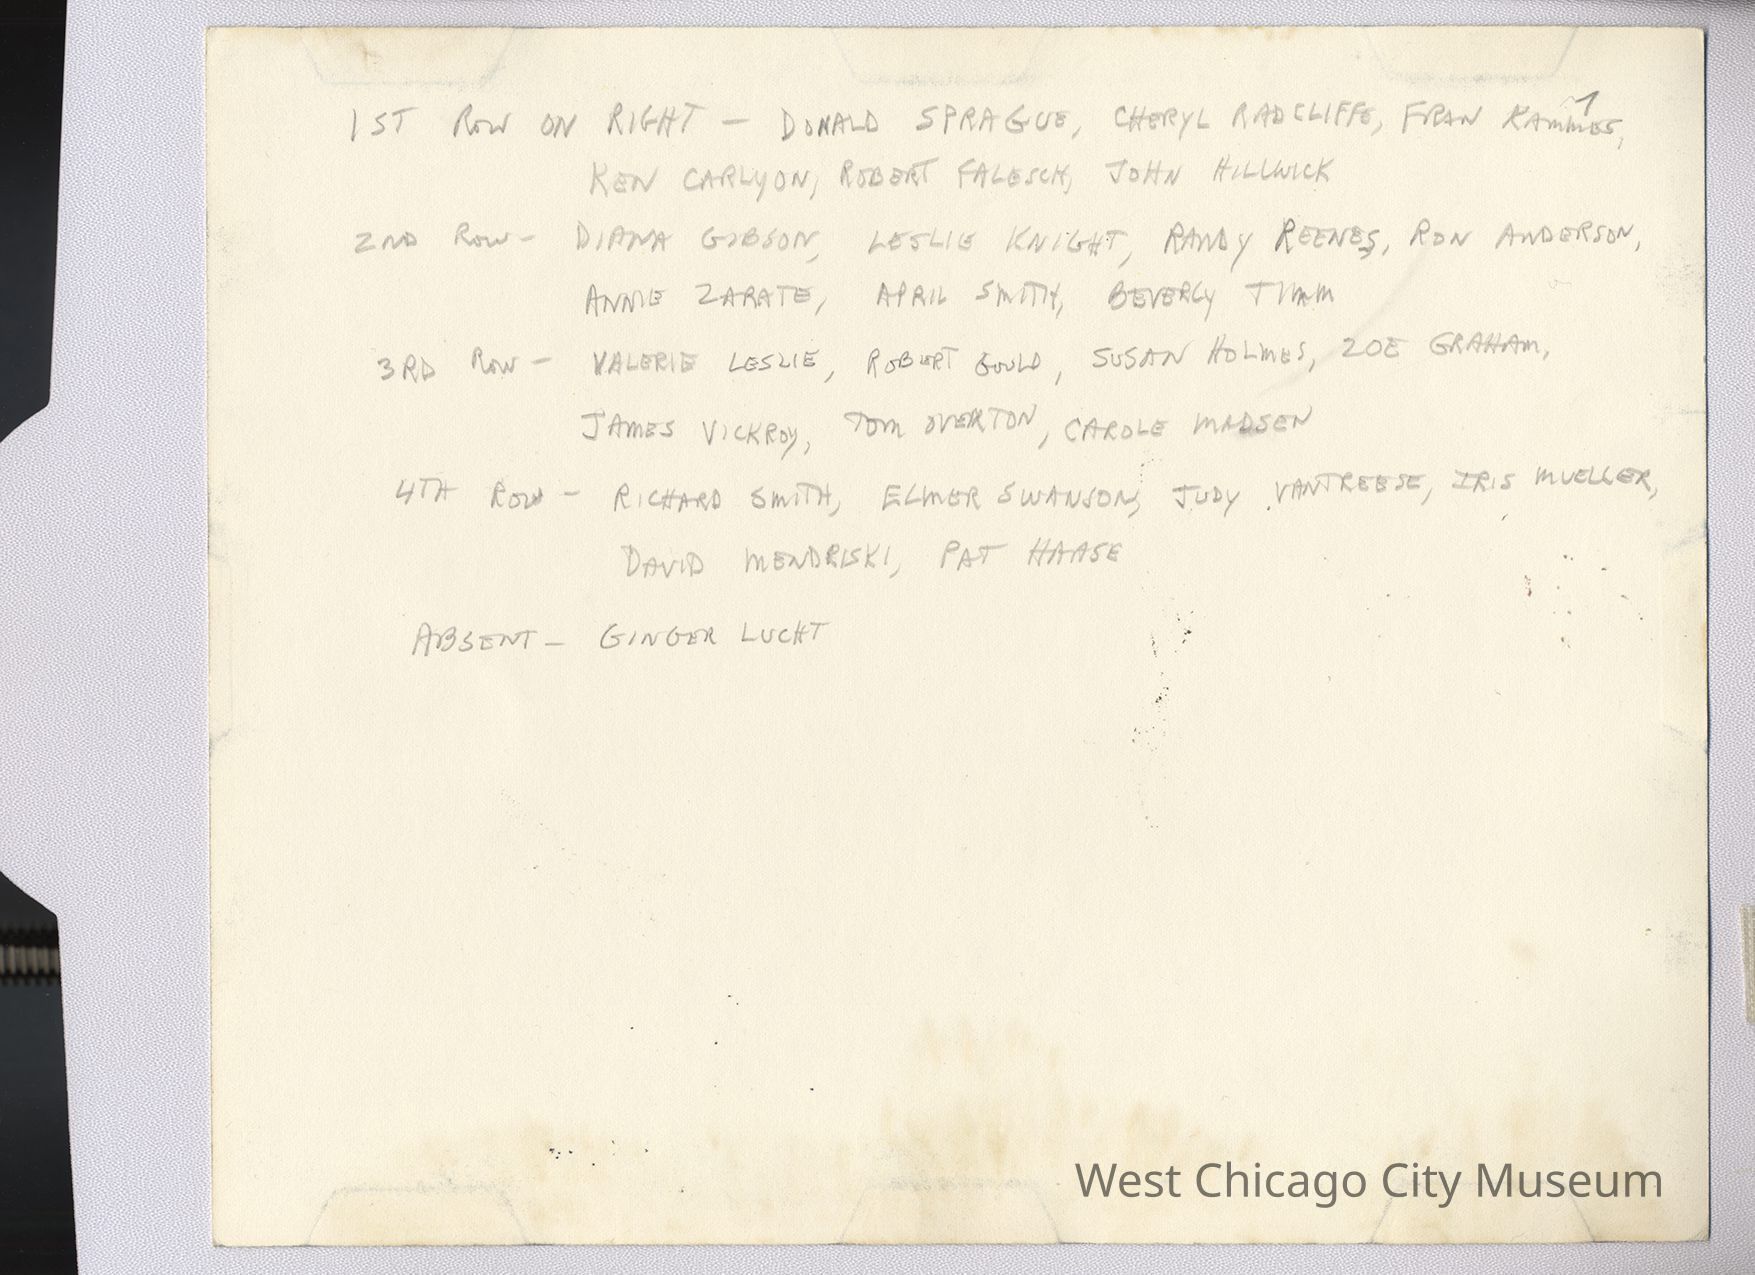 1ST ROW ON RIGHT — DONALD SPRAGUE, CHERYL RADCLIFFE, FRAN KAMMES,
KEN CARLYON, ROBERT FALESCH, JOHN HILLWICK
2ND ROW — DIANA GIBSON, LESLIE KNIGHT, RANDY REENES, RON ANDERSON,
ANNIE ZARATE, APRIL SMITH, BEVERLY TIMM
3RD ROW — VALERIE LESLIE, ROBERT GOULD, SUSAN HOLMES, ZOE GRAHAM,
JAMES VICKROY, TOM OVERTON, CAROLE MADSEN
4TH ROW — RICHARD SMITH, ELMER SWANSON, JUDY VANTREESE, IRIS MUELLER,
DAVID MENDRISKI, PAT HAASE
ABSENT — GINGER LUCHT
West Chicago City Museum